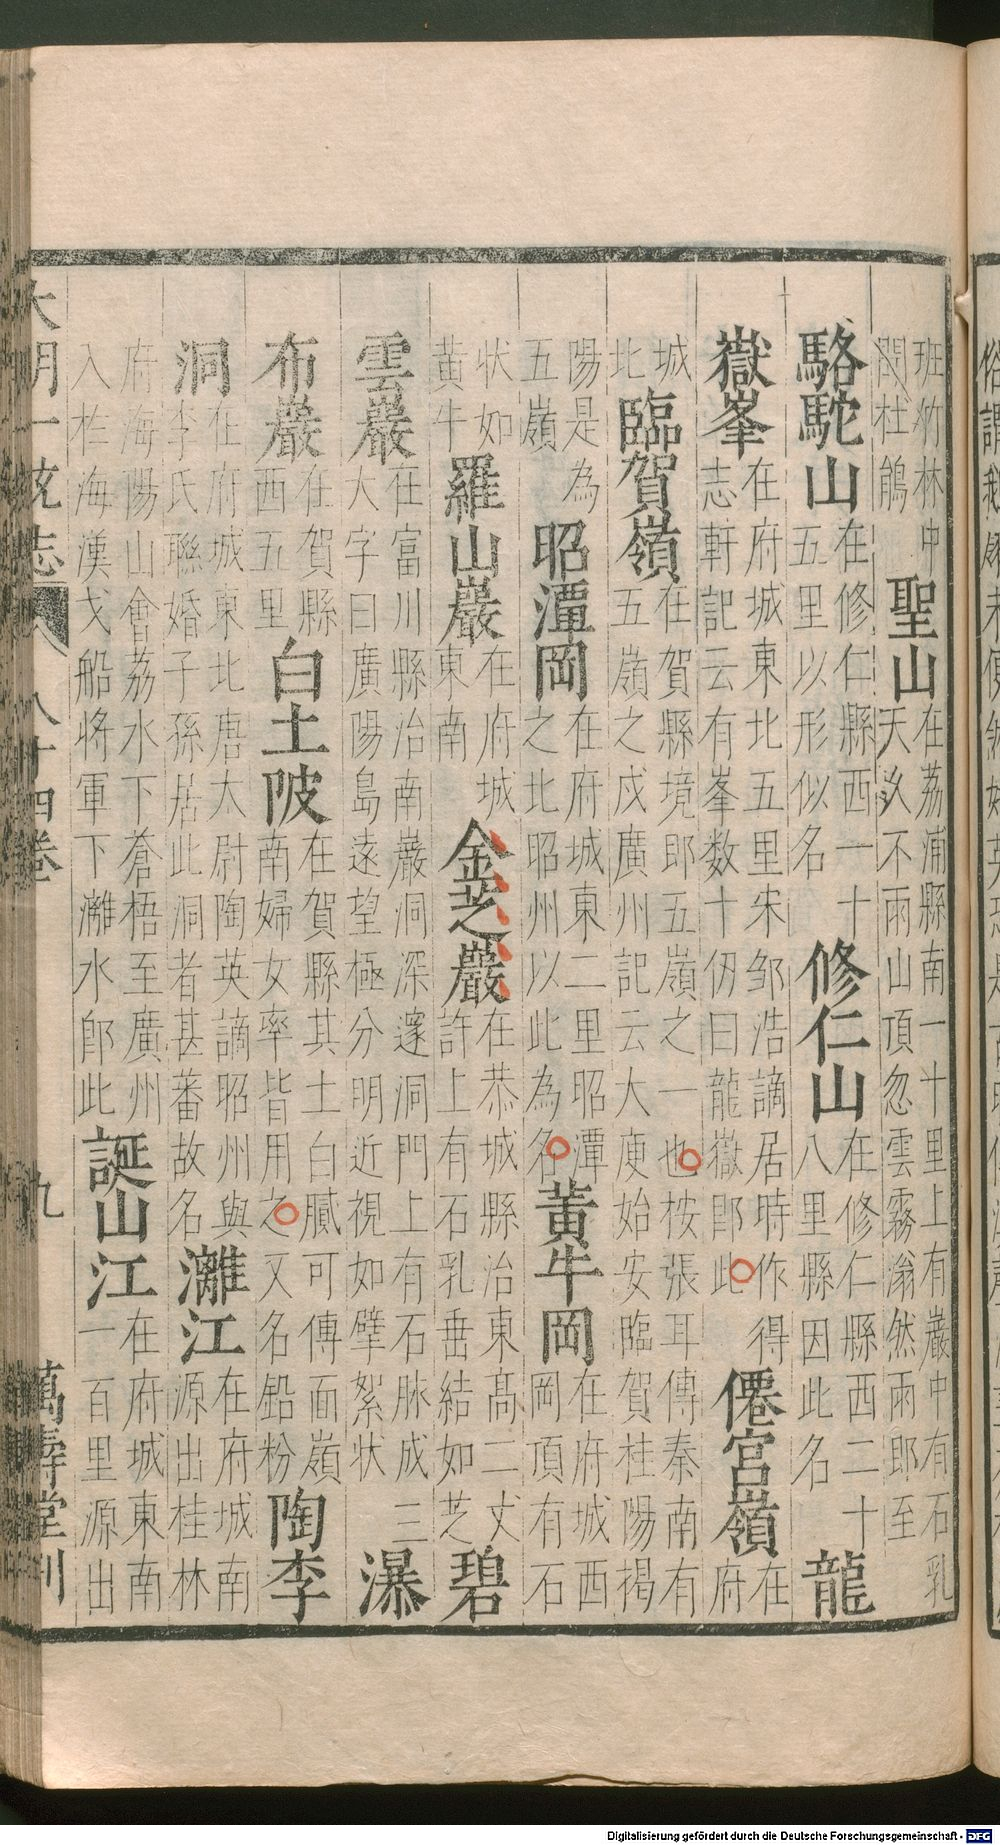 班竹林中聞杜鵑 聖山 在荔浦縣南一十里上有巖中有石乳天久不雨山頂忽雲霧滃然雨即至
駱駝山 在修仁縣西一十五里以形似名 修仁山 在修仁縣西二十八里縣因此名 龍
嶽峯 在府城東北五里宋邹浩謫居時作得志軒記云有峯数十仞曰龍嶽即此 僊宮嶺 在府
城北 臨賀嶺 在賀縣境即五嶺之一也按張耳傳秦南有五嶺之戍廣州記云大庾始安臨賀桂陽揭
陽是為五嶺 昭潭岡 在府城東二里昭潭之北昭州以此為名 黄牛岡 在府城西岡頂有石
状如黄牛 羅山巖 在府城東南 金芝巖 在恭城縣治東髙二丈許上有石乳垂結如芝 碧
雲巖 在富川縣治南巖洞深邃洞門上有石脉成三大字曰廣陽島遠望極分明近視如擘絮状 瀑
布巖 在賀縣西五里 白土陂 在賀縣其土白膩可傳面嶺南婦女率皆用之又名鉛粉 陶李
洞 在府城東北唐大尉陶英謫昭州與李氏聮婚子孫居此洞者甚蕃故名 灕江 在府城南源出桂林
府海陽山會荔水下蒼梧至廣州入柞海漢戈船將軍下灕水即此 誕山江 在府城東南一百里源出
大明一統志 八十四卷 九 萬壽堂刊
Digitalisierung gefördert durch die Deutsche Forschungsgemeinschaft - DFG